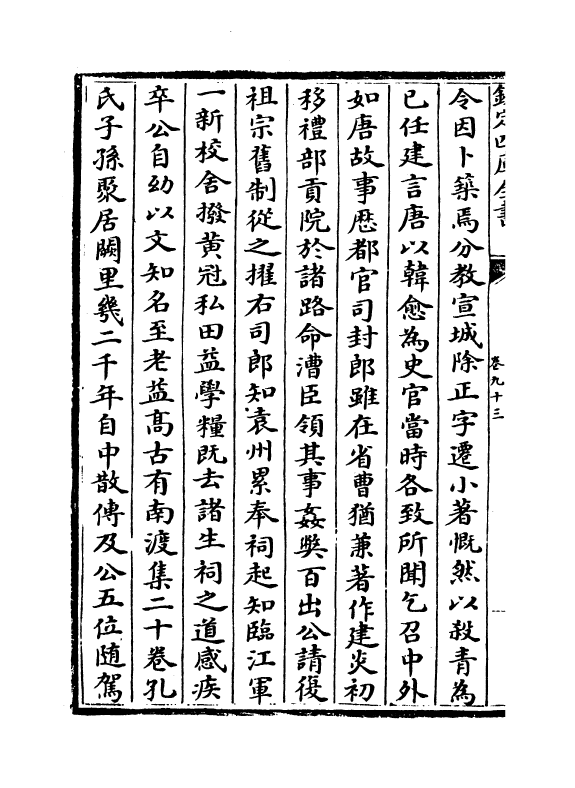 欽定四庫全書
卷九十三
令因卜築焉分教宣城除正字遷小著慨然以殺青為
已任建言唐以韓愈為史官當時各致所聞乞召中外
如唐故事歴都官司封郎雖在省曹猶兼著作建炎初
移禮部貢院於諸路命漕臣領其事姦𡚁百出公請復
祖宗舊制從之擢右司郎知袁州累奉祠起知臨江軍
一新校舍撥黄冠私田益學糧既去諸生祠之道感疾
卒公自幼以文知名至老益髙古有南渡集二十卷孔
氏子孫聚居闕里幾二千年自中散傳及公五位随駕